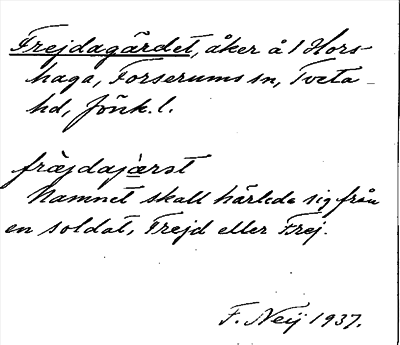 Frejdagärdet, åker å 1 Hors-
haga, Forserums sn, Tveta
hd, Jönk. l.
fräjdajærst
Namnet skall härleda sig från
en soldat, Frejd eller Frej.
F. Neij 1937.